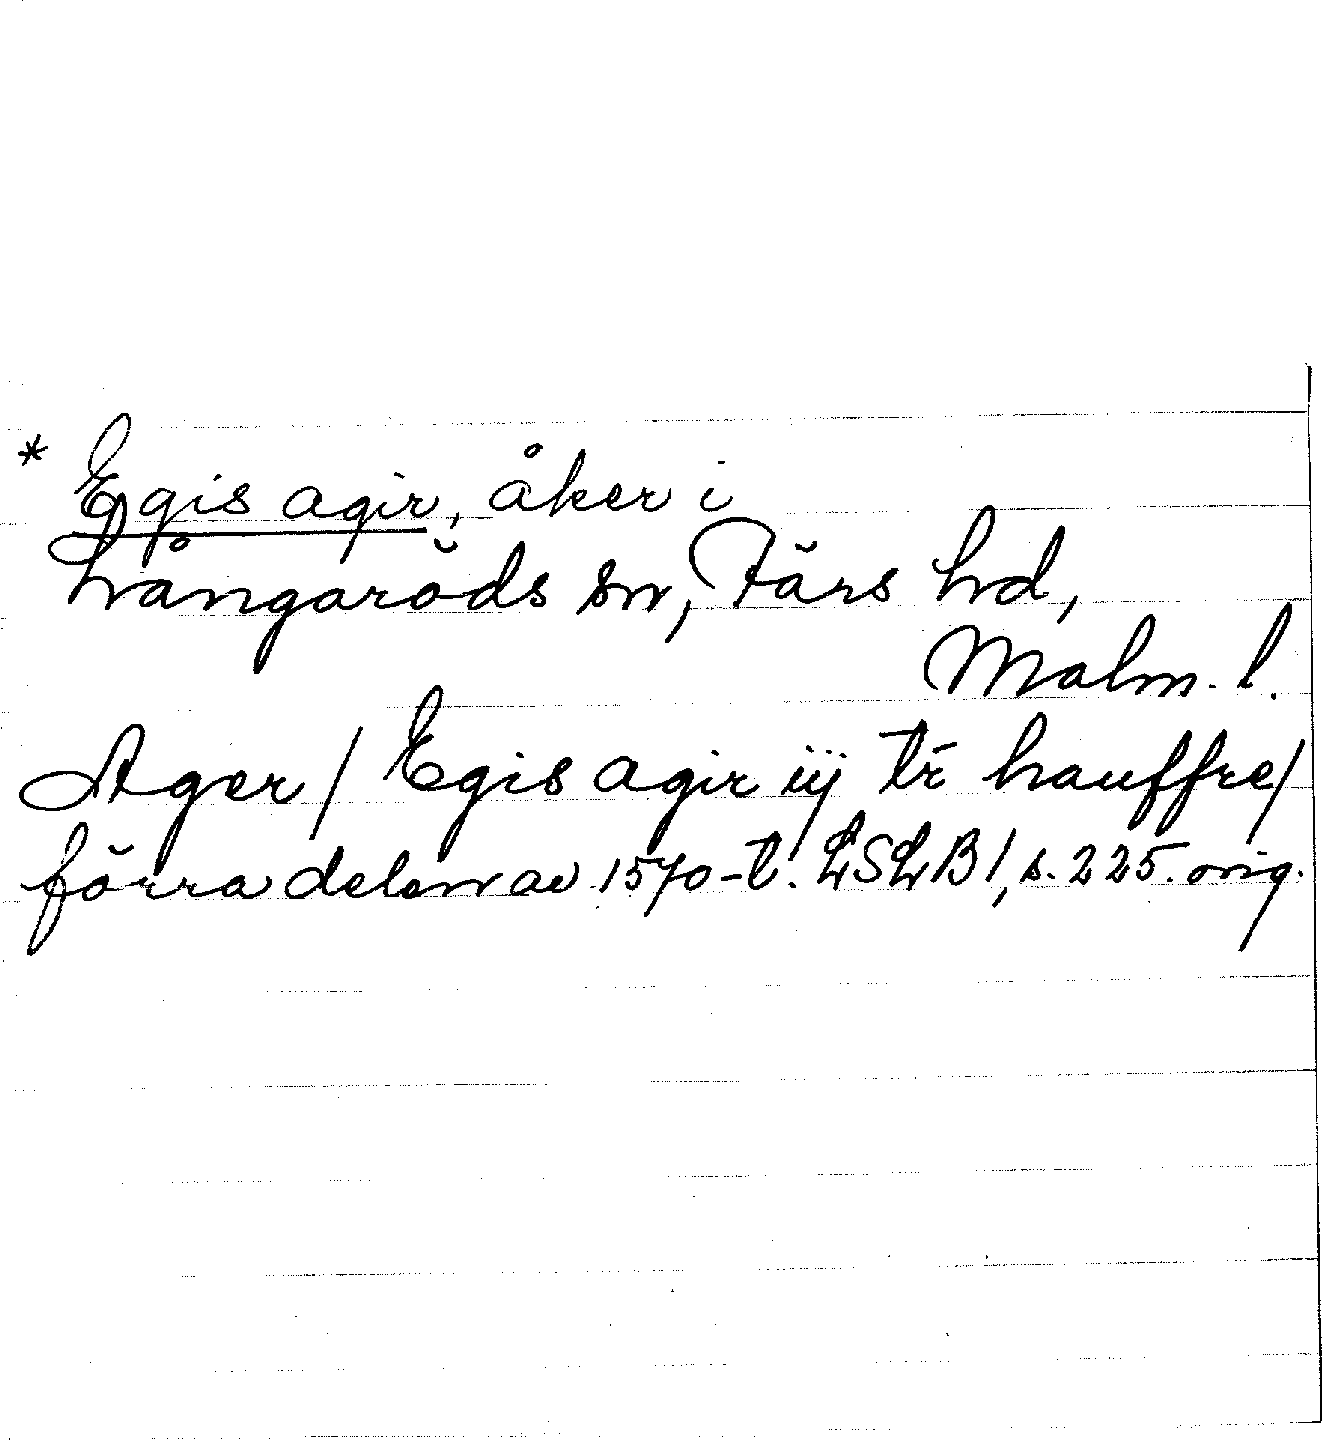 * Egis agir, åker i
Långaröds sn, Färs hd,
Malm. l.
Ager / Egis agir iij tr̄ hauffre/
förra delen av 1570-t. LSLB1, s. 225. orig.